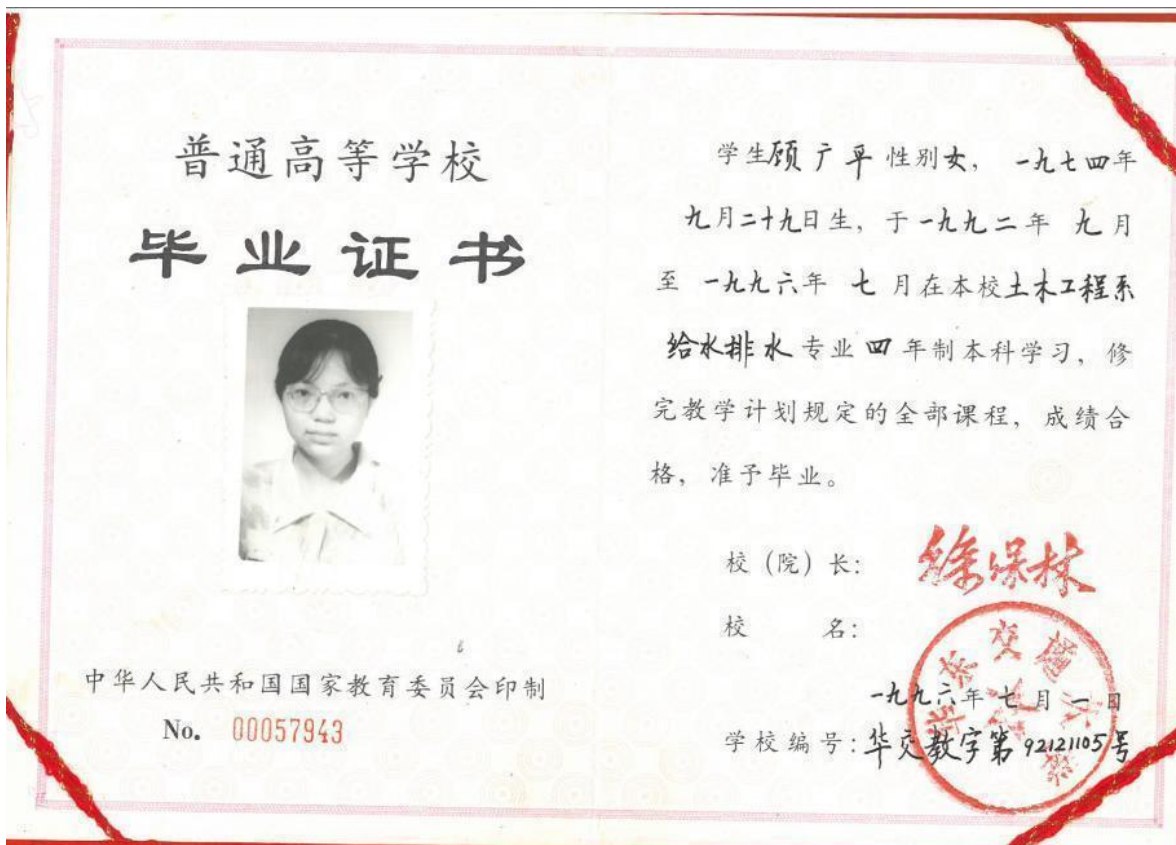 普通高等学校
毕业证书
中华人民共和国国家教育委员会印制
No. 00057943
学生顾广平性别女，一九七四年
九月二十九日生，于一九九二年九月
至一九九六年七月在本校土木工程系
给水排水专业四年制本科学习，修
完教学计划规定的全部课程，成绩合
格，准予毕业。
校（院）长：徐保林
校名：
华东交通大学
一九九六年七月一日
学校编号：华交教字第92121105号